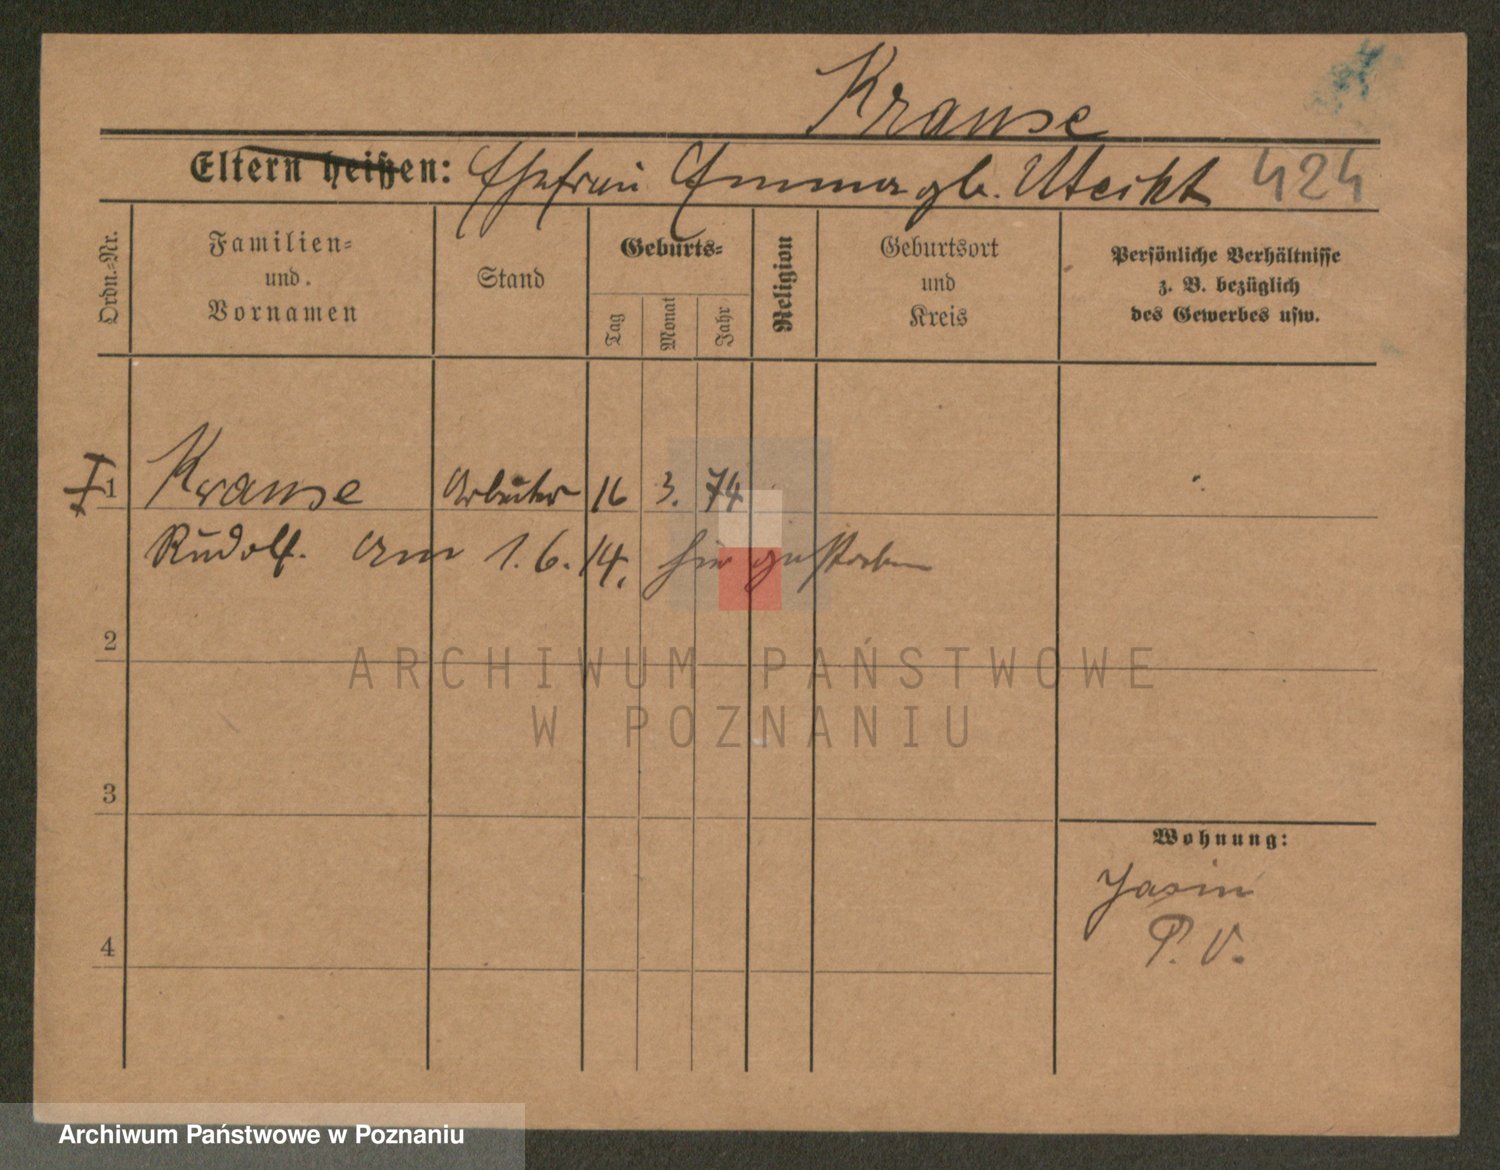 Krause
Eltern heißen: Ehefrau Emma gb. Uteikt 424
Ordn.-Nr.
Familien-
und
Vornamen
Stand
Geburts-
Tag
Monat
Jahr
Religion
Geburtsort
und
Kreis
Persönliche Verhältnisse
z. B. bezüglich
des Gewerbes usw.
I 1 Krause Arbeiter 16 3. 74
Rudolf. Am 1.6.14. hier gestorben
2
ARCHIWUM PAŃSTWOWE
W POZNANIU
3
Wohnung:
P. V.
4
Archiwum Państwowe w Poznaniu